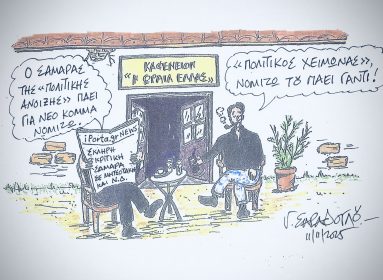 Ο ΣΑΜΑΡΑΣ
ΤΗΣ «ΠΟΛΙΤΙΚΗΣ
ΑΝΟΙΞΗΣ» ΠΑΕΙ
ΓΙΑ ΝΕΟ ΚΟΜΜΑ
ΝΟΜΙΖΩ.
ΚΑΦΕΝΕΙΟΝ
"Η ΩΡΑΙΑ ΕΛΛΑΣ"
«ΠΟΛΙΤΙΚΟΣ ΧΕΙΜΩΝΑΣ»,
ΝΟΜΙΖΩ ΤΟΥ ΠΑΕΙ ΓΑΝΤΙ!
iPorta.gr NEWS
ΣΚΛΗΡΗ
ΚΡΙΤΙΚΗ
ΣΑΜΑΡΑ
ΣΕ ΜΗΤΣΟΤΑΚΗ
ΚΑΙ Ν.Δ.
11/11/2025